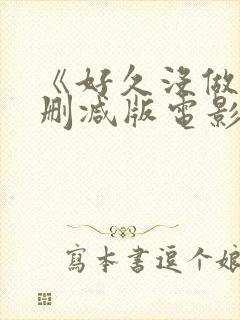 《好久没做
删减版电影
寫本書逗个娘